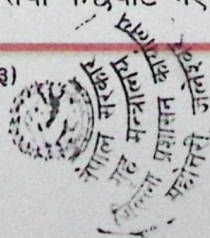 ३)
नेपाल सरकार
गृह मन्त्रालय
जिल्ला प्रशासन कार्यालय
महोत्तरी
जलेश्वर